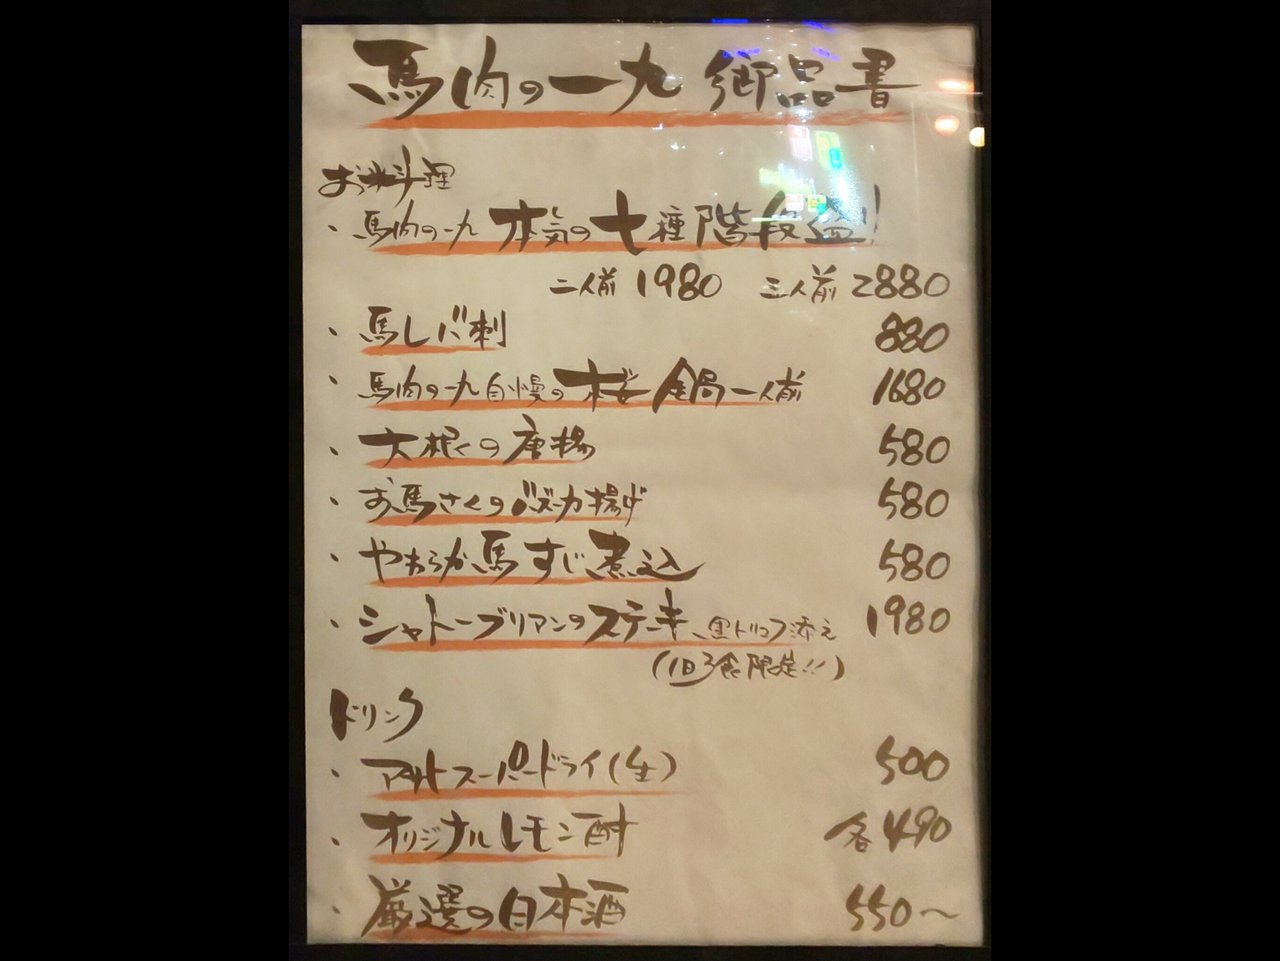 馬肉の一九 御品書
お料理
・馬肉の一九 本気の七種階段盛!
二人前 1980 三人前 2880
・馬レバ刺 880
・馬肉の一九自慢の桜鍋一人前 1680
・大根の唐揚 580
・お馬さんのバズーカ揚げ 580
・やわらか馬すじ煮込 580
・シャトーブリアンのステーキ、黒トリュフ添え 1980
(1日3食限定!!)
ドリンク
・アサヒスーパードライ(生) 500
・オリジナルレモン酎 各490
・厳選の日本酒 550〜